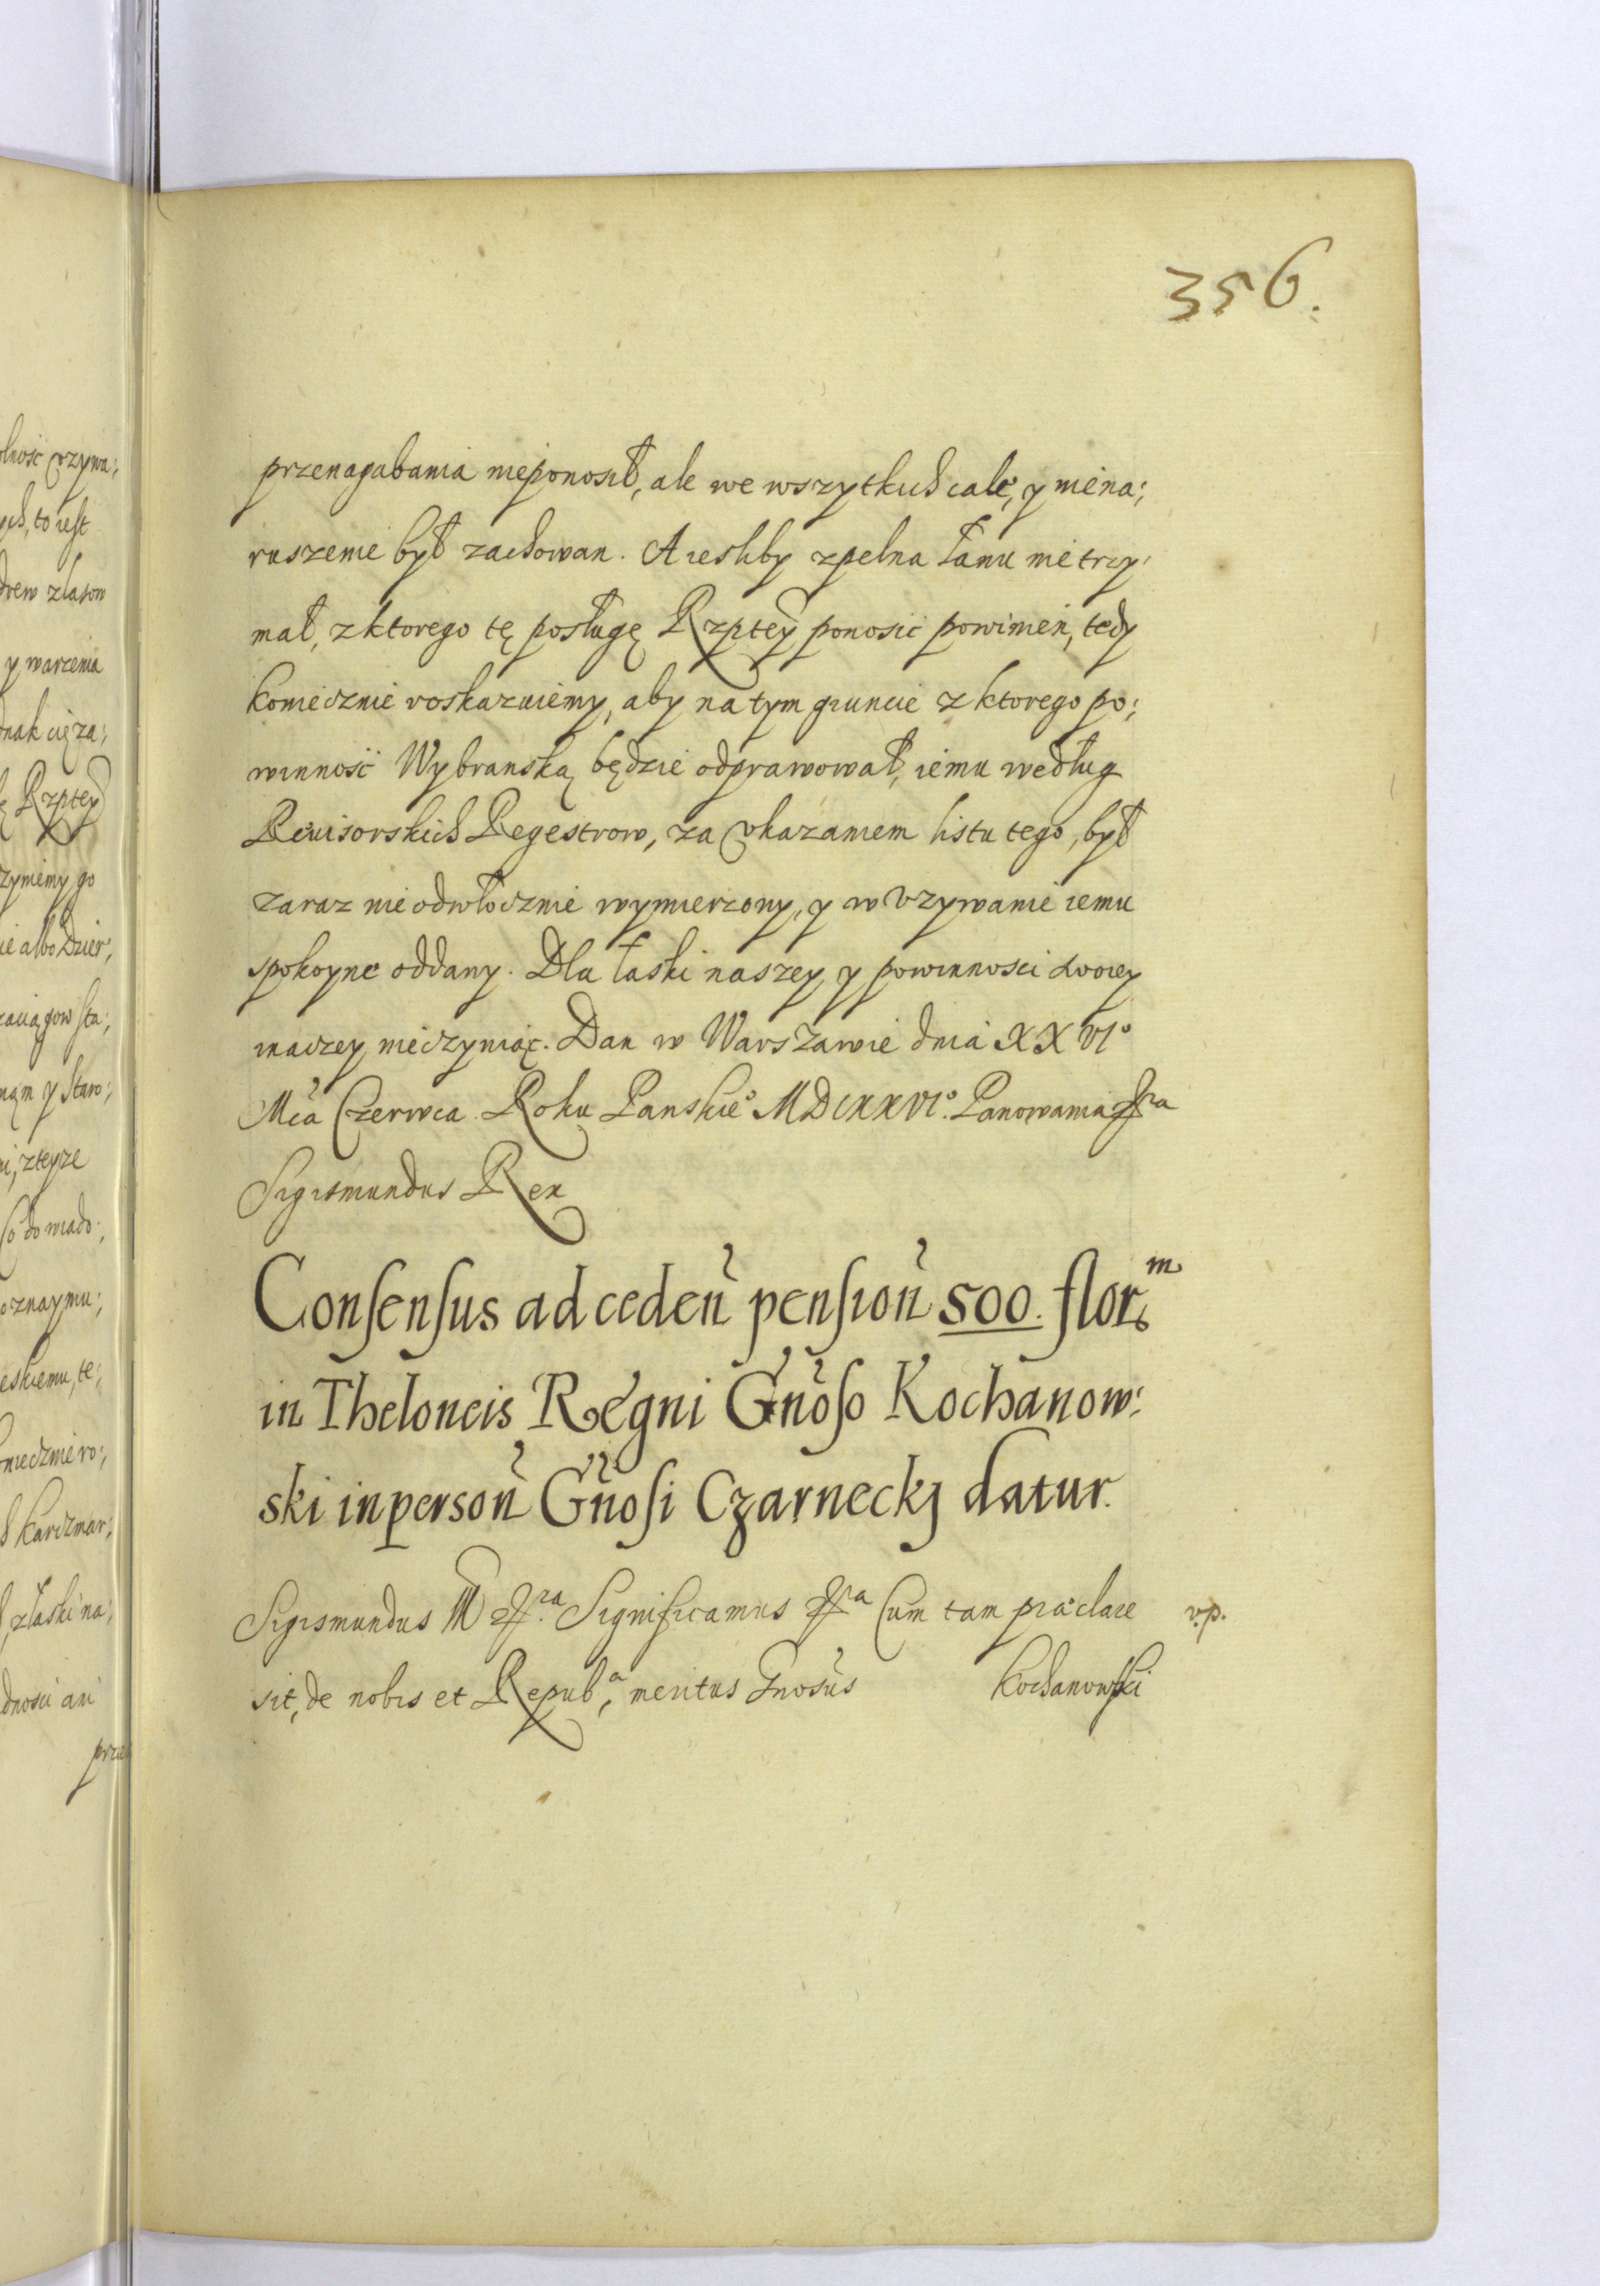 356.
przenagabania nieponosił, ale we wszytkich cale, y niena;
ruszenie był zachowan. A iesliby zpełna łanu nietrzy;
mał, z ktorego tę posługę Rzptey ponosic powinien, tedy
koniecznie roskazuiemy, aby na tym gruncie z ktorego po;
winność Wybranską będzie odprawował, iemu według
Reuisorskich Regestrow, za vkazaniem listu tego, był
zaraz nieodwłocznie wymierzony, y w vzywanie iemu
spokoyne oddany. Dla łaski naszey y powinnosci swoiey
inaczey nieczyniąc. Dan w Warszawie dnia XXVI°
Mca Czerwca Roku Panskie° MDCXXVI°. Panowania &ra
Sigismundus Rex
Consensus ad ceden̄ pension̄ 500. flor.m
in Theloneis Regni Gn̄oso Kochanow:
ski in person̄ Gn̄osi Czarnecky datur.
Sigismundus III &.ra Significamus &ra Cum tam præclare v.p.
sit, de nobis et Repub.a, meritus Gnosus Kochanowski
olność vzywa;
ych, to iest
drew zlasow
y warzenia
dnak cięza;
Rzptey
zymiemy go
ie albo Dzier;
zaciągow sta;
y Staro;
ni, zteyze
Co do wiado;
oznaymu;
eskiemu, te;
niecznie ro;
karczmar;
złaski na;
dnosci ani
prze